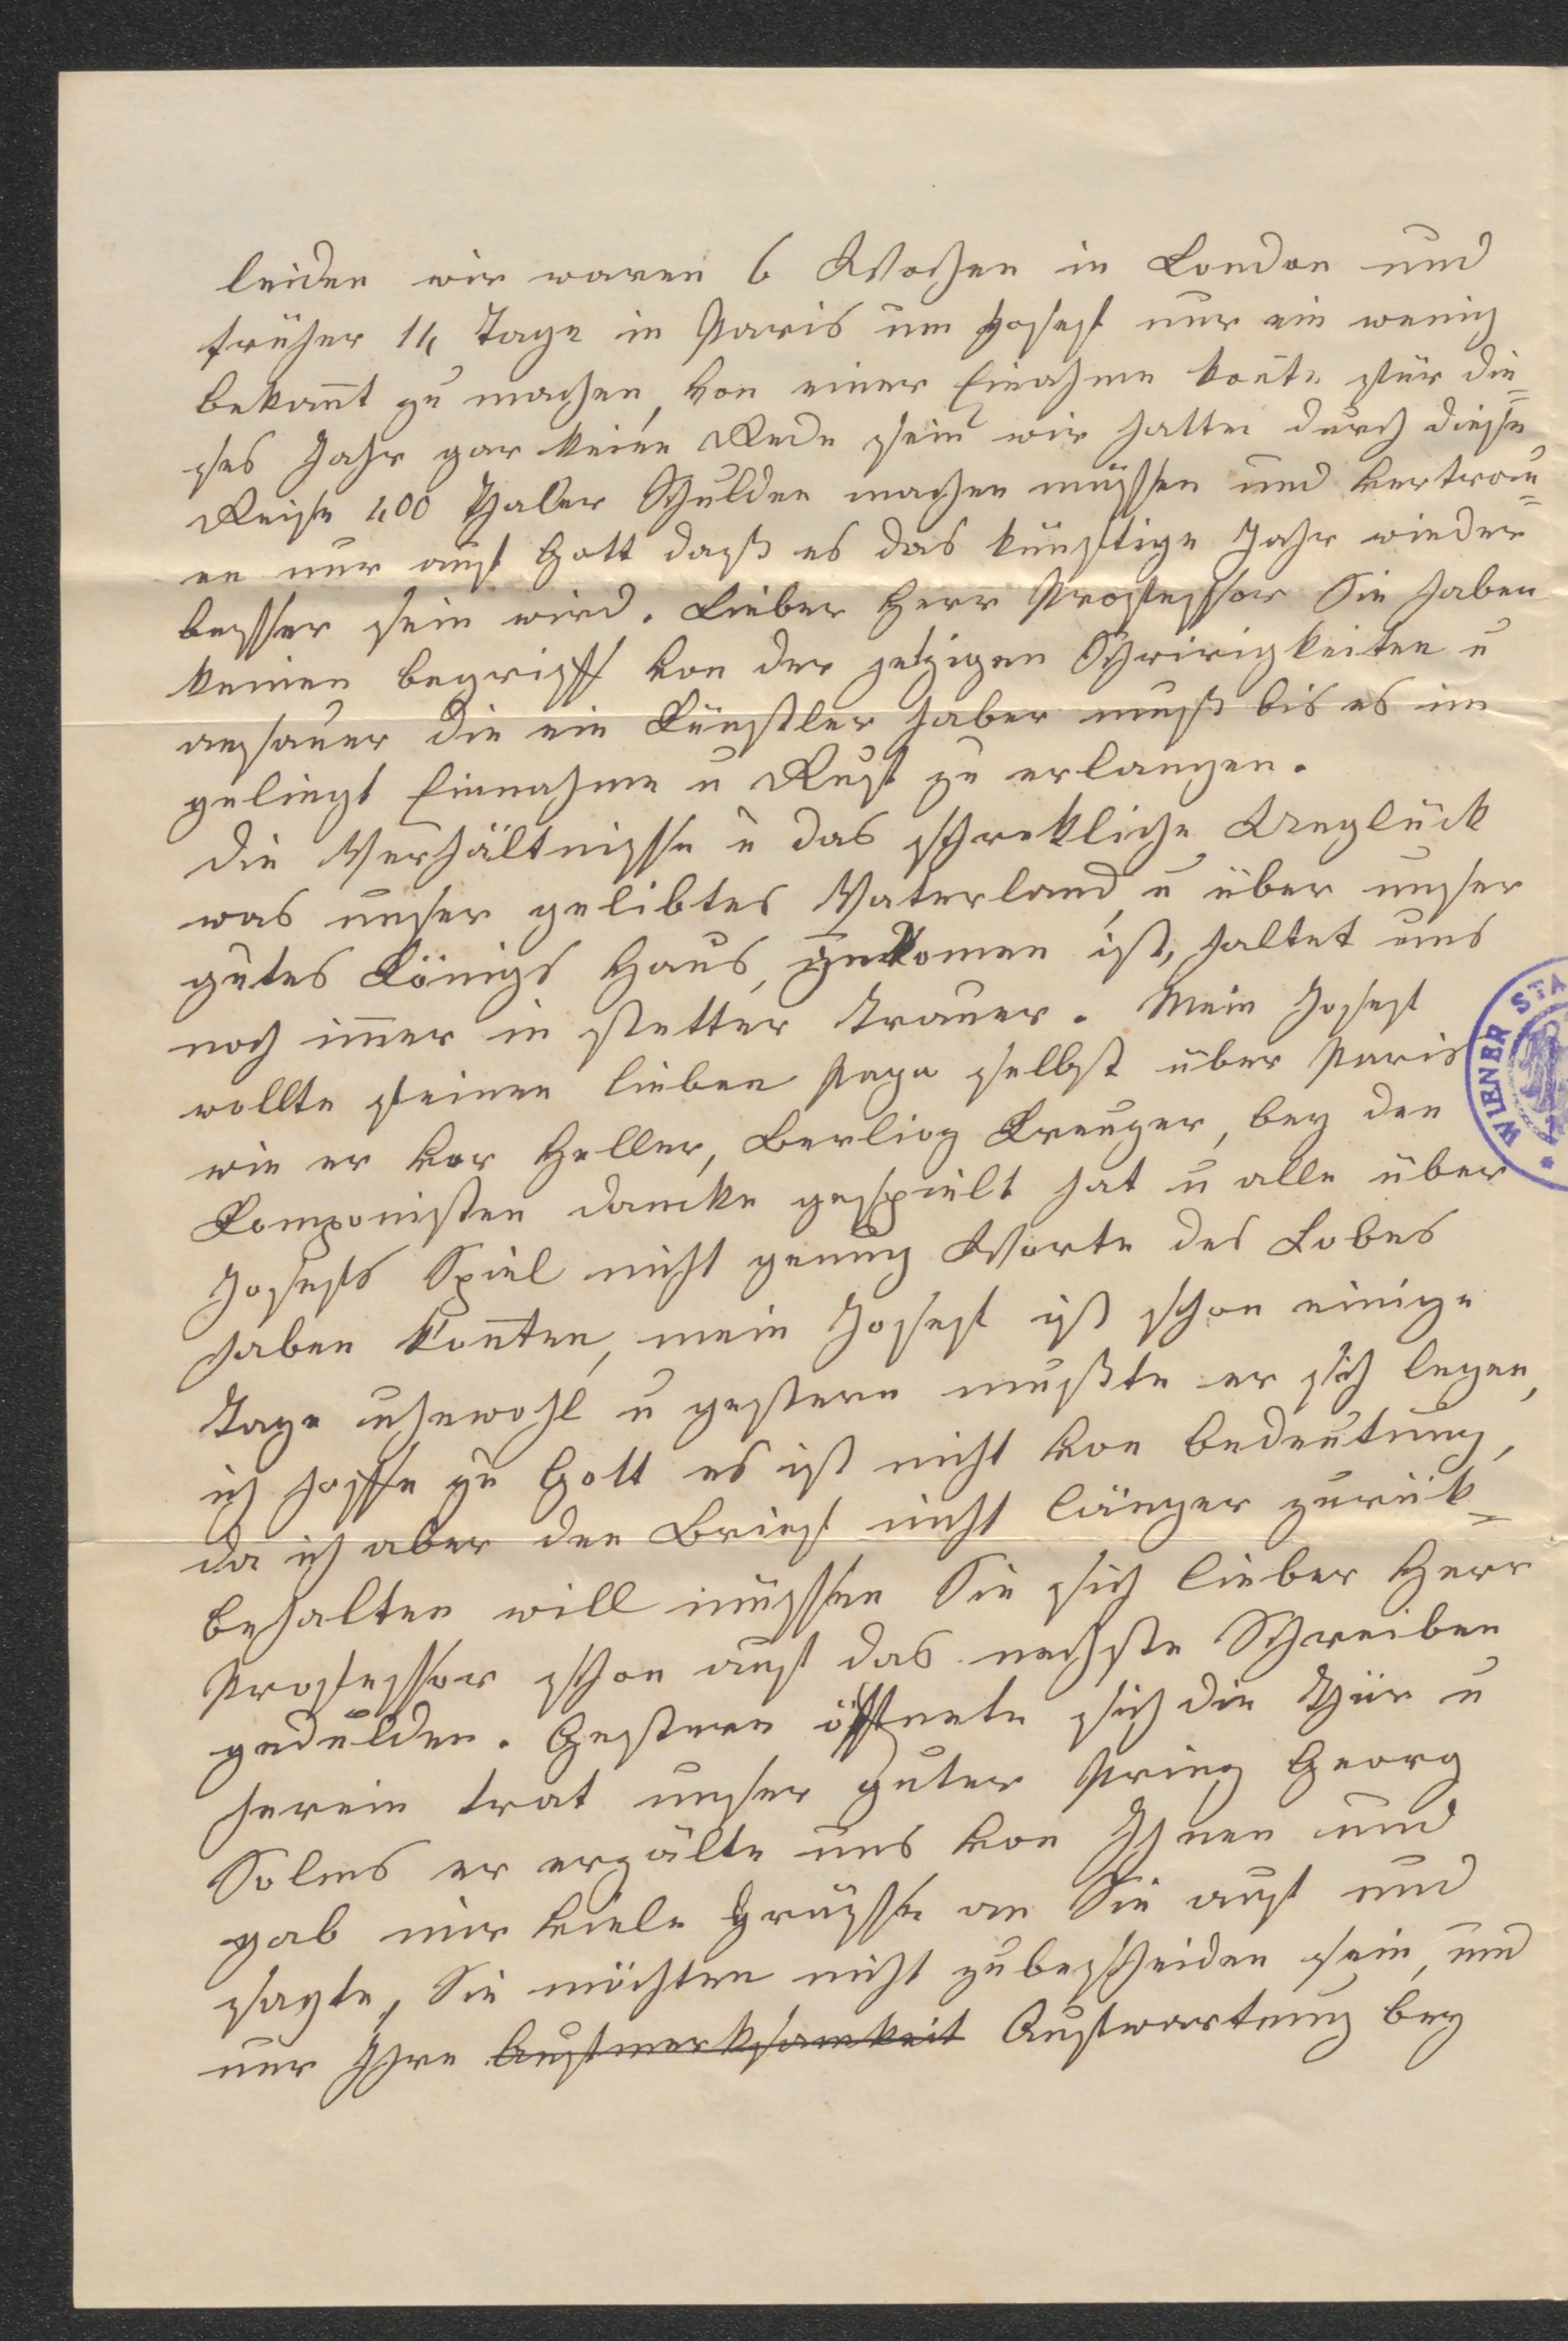 leiden wir waren 6 Wochen in London und
früher 14 Tage in Paris um Josef nur ein wenig
bekan̄t zu machen, von einer Einahme kon̄te für die=
ses Jahr gar keine Rede sein wir hatten durch diese
Reise 400 Thaler Schulden machen müssen und vertrau=
en nur auf Gott daß es das künftige Jahr wieder
besser sein wird. Lieber Herr Professor Sie haben
keinen begriff von der jetzigen Schwirigkeiten u
die ein Künstler haben muß bis es im
gelingt Einnahme u Ruf zu erlangen.
die Verhältnisse u das schrekliche Unglück
was unser gelibtes Vaterland, u über unser
gutes Königs Haus, gekomen ist, haltet uns
noch im̄er in stetter Trauer. Mein Josef
wollte seinen lieben Papa selbst über Paris
wie er vor Heller, Berlioz Kreuzer, bey den
Komponisten damke gespielt hat u alle über
Josefs Spiel nicht genug Worte des Lobes
haben kon̄ten, mein Josef ist schon einige
Tage unwohl u gestern mußte er sich legen,
ich hoffe zu Gott es ist nicht von bedeutung,
da ich aber den Brief nicht länger zurük=
behalten will müssen Sie sich lieber Herr
Professor schon auf das nechste Schreiben
gedulden. Gestern öffnete sich die Thür u
herein trat unser guter Prinz Georg
Solms er erzälte uns von Ihnen und
gab mir viele Grüsse an Sie auf und
sagte, Sie möchten nicht zubescheiden sein, und
nur Ihre Aufmerksamkeit Aufwartung bey
WIENER STA